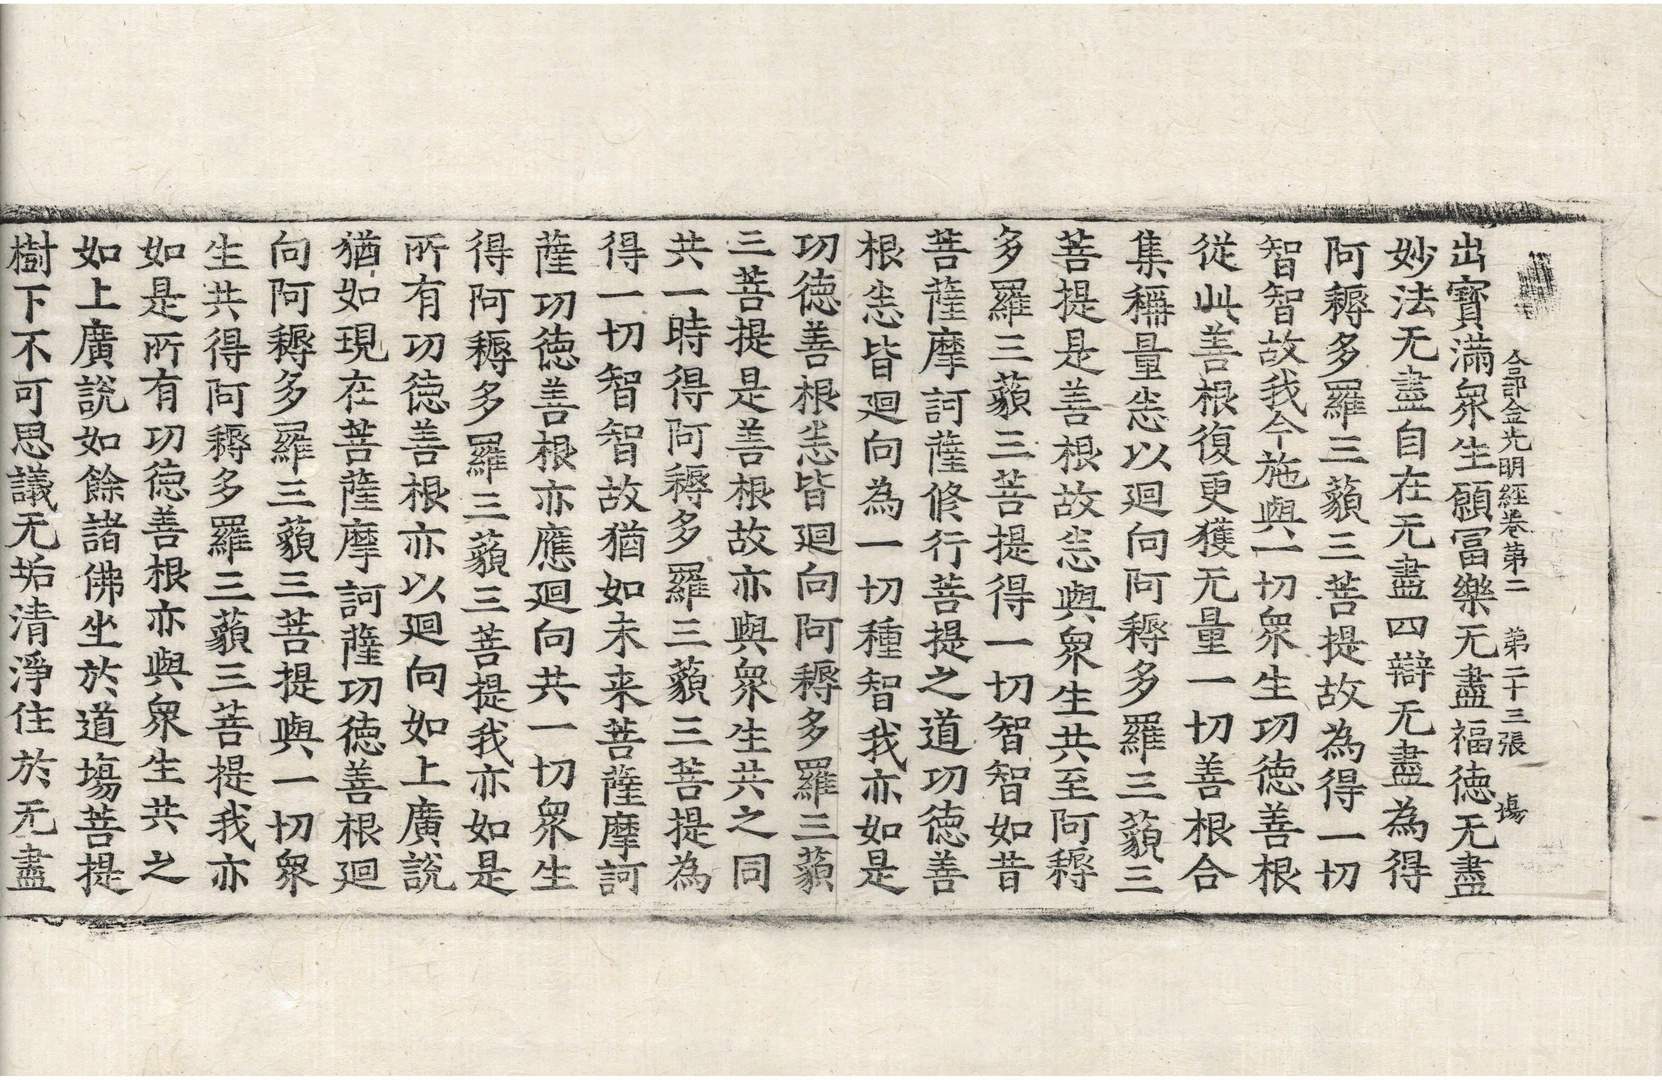 合部金光明經卷第二 第二十三張 場
出寳滿衆生願冨樂无盡福德无盡
妙法无盡自在无盡四辯无盡為得
阿耨多羅三藐三菩提故為得一切
智智故我今施與一切衆生功德善根
從此善根復更獲无量一切善根合
集稱量悉以廻向阿耨多羅三藐三
菩提是善根故悉與衆生共至阿耨
多羅三藐三菩提得一切智智如昔
菩薩摩訶薩修行菩提之道功德善
根悉皆廻向為一切種智我亦如是
功德善根悉皆廻向阿耨多羅三藐
三菩提是善根故亦與衆生共之同
共一時得阿耨多羅三藐三菩提為
得一切智智故猶如未来菩薩摩訶
薩功德善根亦應廻向共一切衆生
得阿耨多羅三藐三菩提我亦如是
所有功德善根亦以廻向如上廣說
猶如現在菩薩摩訶薩功德善根廻
向阿耨多羅三藐三菩提與一切衆
生共得阿耨多羅三藐三菩提我亦
如是所有功德善根亦與衆生共之
如上廣說如餘諸佛坐於道場菩提
樹下不可思議无垢清淨住於无盡